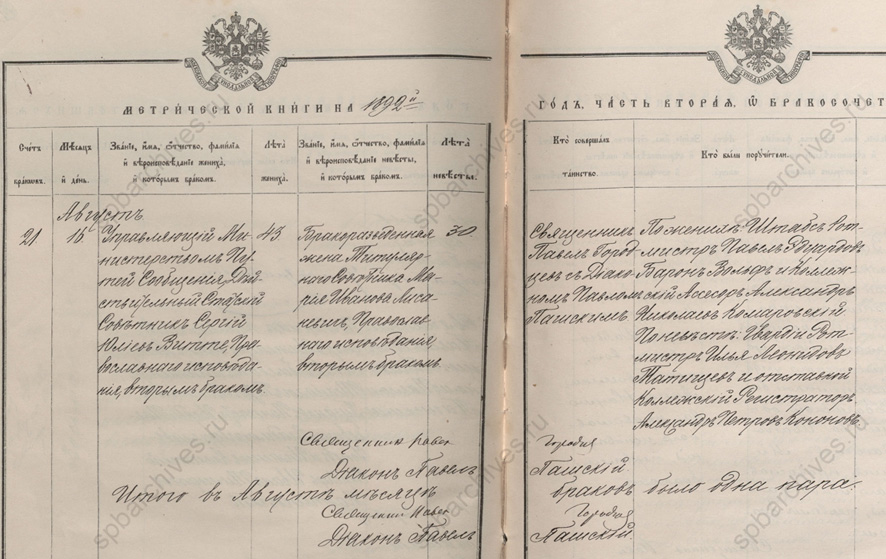 МЕТРИЧЕСКОЙ КНИГИ НА 1892й
ГОДЪ, ЧАСТЬ ВТОРАЯ, Ѿ БРАКОСОЧЕТ
Счетъ браковъ.
Мѣсяцъ и день.
Званіе, имя, отчество, фамилія и вѣроисповѣданіе жениха, и которымъ бракомъ.
Лѣта жениха.
Званіе, имя, отчество, фамилія и вѣроисповѣданіе невѣсты, и которымъ бракомъ.
Лѣта невѣсты.
Кто совершалъ таинство.
Кто были поручители.
Августъ.
21
15
Управляющій Ми-
нистерствомъ Пу-
тей Сообщенія, Дѣй-
ствительный Статскій
Совѣтникъ Сергій
Юліевъ Витте, Пра-
вославнаго исповѣда-
нія, вторымъ бракомъ.
43
Бракоразведенная
жена Титуляр-
наго Совѣтника Ма-
рія Иванова Лиса-
невичъ, Православ-
наго исповѣданія,
вторымъ бракомъ.
30
Священникъ
Павелъ Город-
цевъ съ Діако-
номъ Павломъ
Пашскимъ
По женихѣ: Штабсъ-Рот-
мистръ Павелъ Эдуардовъ
Баронъ Вольфъ и Коллеж-
скій Ассесоръ Александръ
Николаевъ Комаровскій
По невѣстѣ: Гвардіи Рот-
мистръ Илья Леонидовъ
Татищевъ и отставной
Коллежскій Регистраторъ
Александръ Петровъ Кононовъ.
Священникъ Павел Городцев
Діаконъ Павелъ Пашскій
Итого въ Августѣ мѣсяцѣ браковъ было одна пара.
Священникъ Павел Городцев
Діаконъ Павелъ Пашскій.
spbarchives.ru
spbarchives.ru
spbarchives.ru
spbarchives.ru
spbarchives.ru
spbarchives.ru